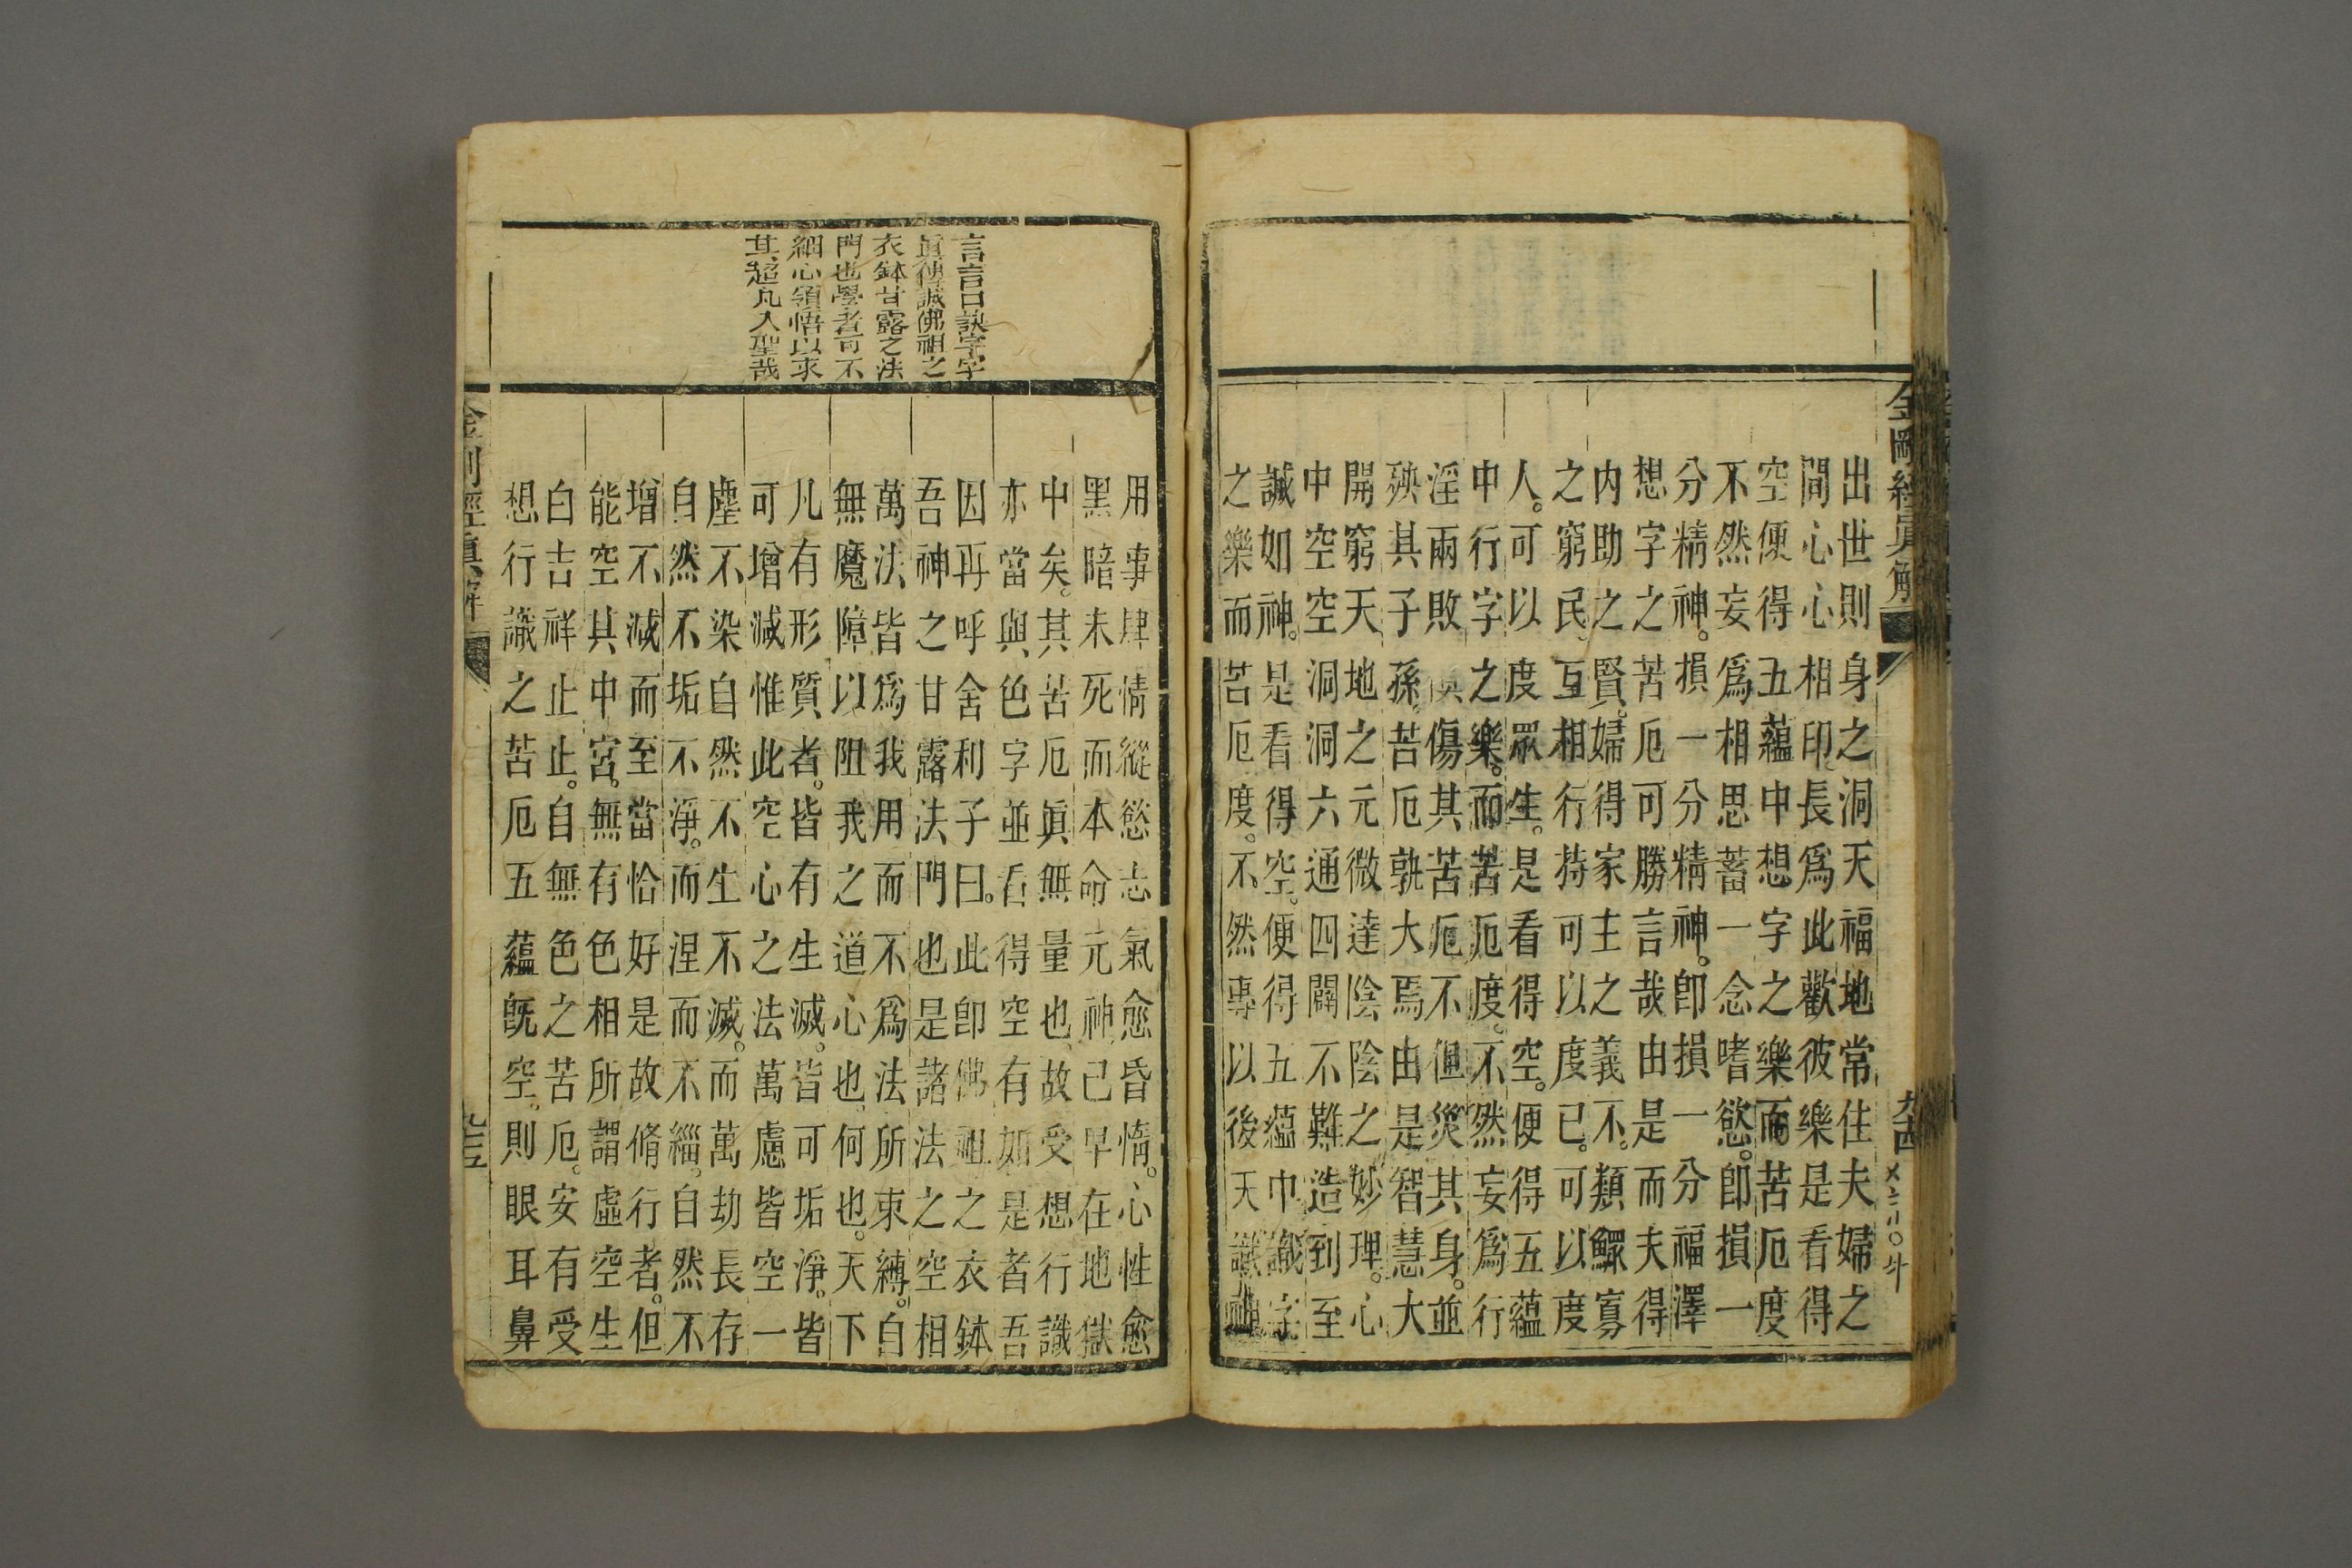 金剛經眞解
出世則身之洞天福地常住夫婦之
間心心相印長爲此歡彼樂是看得
空便得五蘊中想字之樂而苦厄度
不然妄爲相思蓄一念嗜慾。卽損一
分精神。損一分精神。卽損一分福澤
想字之苦厄可勝言哉由是而夫得
內助之賢。婦得家主之義不。類鰥寡
之窮民。互相行持可以度已。可以度
人。可以度眾生。是看得空。便得五蘊
中行字之樂。而苦厄度。不然妄爲行
淫兩敗傷其苦厄不但災其身。並
殃其子孫。苦厄孰大焉由是智慧大
開窮天地之元微達陰陰之妙理。心
中空空洞洞六通四闢不難造到至
誠如神。是看得空。便得五蘊中識字
之樂而苦厄度。不然專以後天識神
用事肆情縱慾志氣愈昏惰。心性愈
黑暗未死而本命元神已早在地獄
中矣。其苦厄眞無量也。故受想行識
亦當與色字並看得空有如是者吾
因再呼舍利子曰。此卽佛祖之衣鉢
吾神之甘露法門也是諸法之空相
萬法皆爲我用而不爲法所束縛。自
無魔障以阻我之道心也。何也。天下
凡有形質者。皆有生滅。皆可垢淨。皆
可增減惟此空心之法萬慮皆空一
塵不染自然不生不滅。而萬劫長存
自然不垢不淨。而涅而不緇。自然不
增不減而至當恰好是故脩行者。但
能空其中宮。無有色相所謂虛空生
白吉祥止止。自無色之苦厄。安有受
想行識之苦厄五蘊旣空。則眼耳鼻
言言口訣字字
眞傳誠佛祖之
衣鉢甘露之法
門也學者可不
細心領悟以求
其超凡入聖哉
金剛經眞解